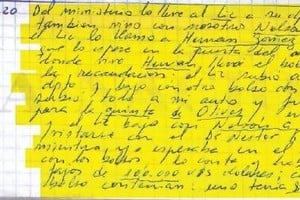 20 Del ministerio lo lleve al Lic a su d
también vino con nosotros Nelson
el Lic lo llamo Hernan Gomez
que lo espere en la puerta del
donde vive Hernan, llevó el bolso
la recaudacion: el Lic subio a
dpto y bajo con otro bolso con
subio todo a mi auto y
para la Quinta de Olivos
el Lic bajo con Nelson a
juntarse con el Dr Nestor
mientras yo esperaba en el
con los bolsos, lo conte y
fajos de 100.000 U$S dolares: c
bolso contenian: uno tenia